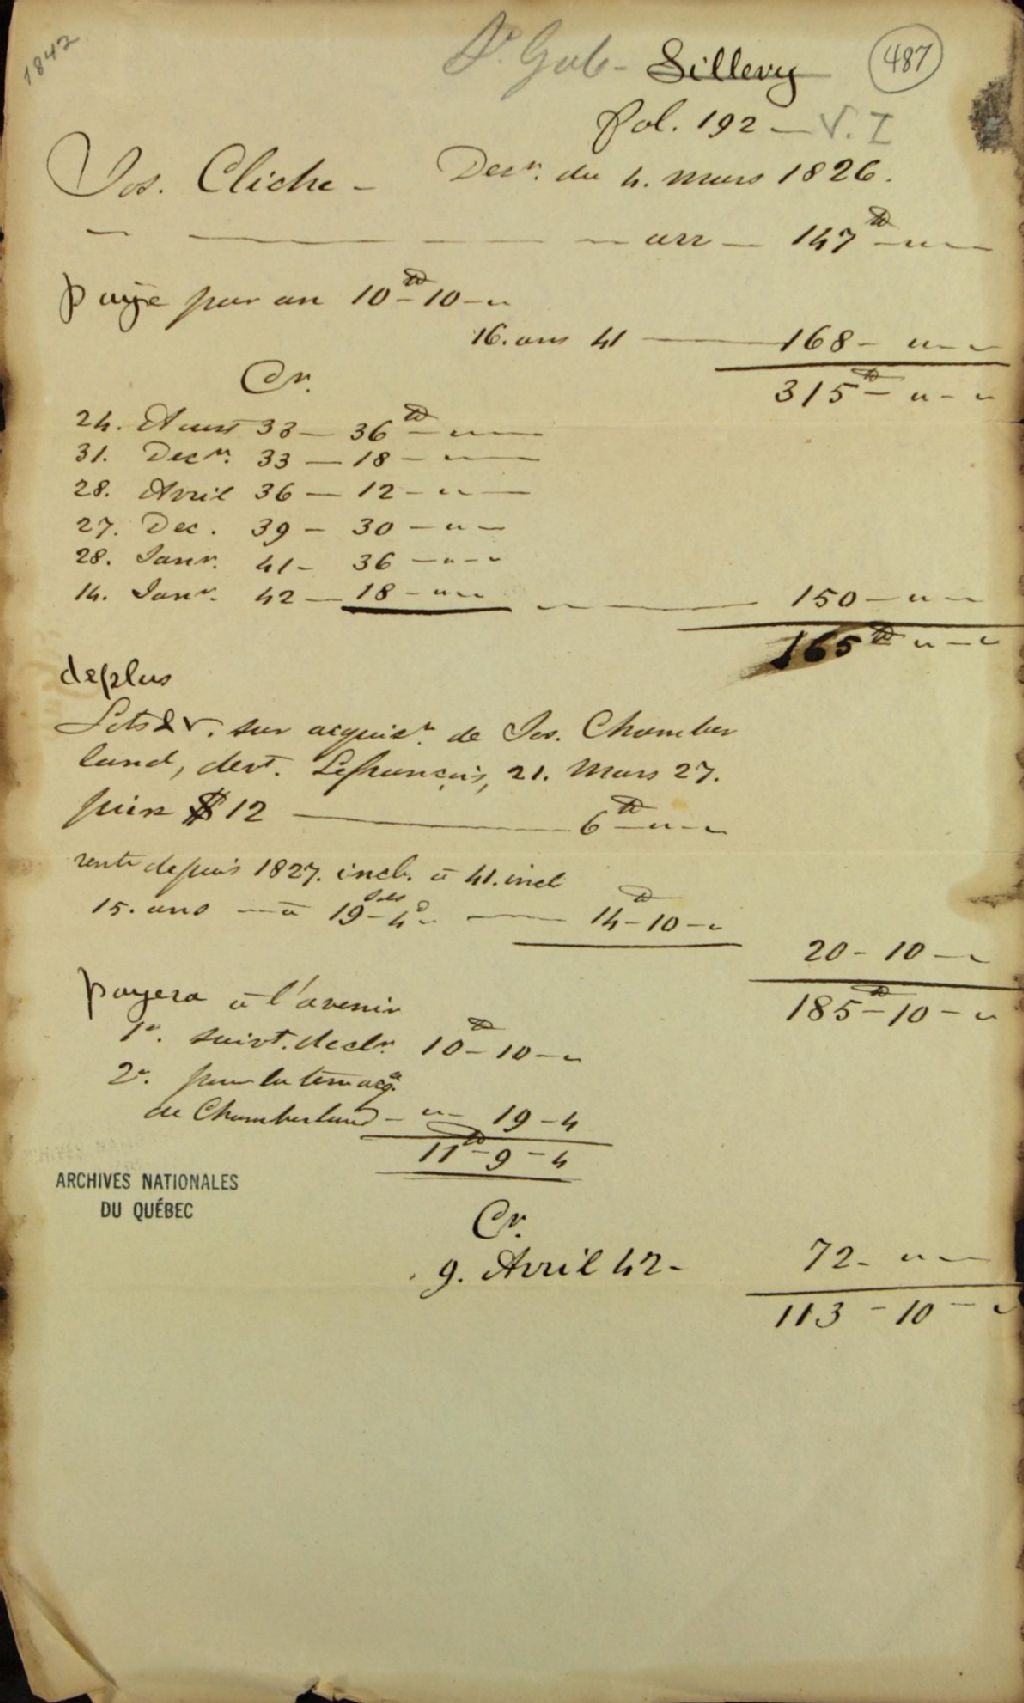 1842
St Gab - Sillery 487
fol. 192 - V. I
Jos. Cliche - Decn. du 4. Mars 1826.
" — — — — arr — 147 tt — " —
paye par an 10 tt - 10 - "
16. ans 41 — 168 - " - "
Cr. 315 tt - " - "
24. Aout 33 — 36 tt - " —
31. Decr. 33 — 18 - " —
28. Avril 36 — 12 - " —
27. Dec. 39 - 30 - " -
28. Janr. 41 - 36 - " - "
14. Janr. 42 — 18 - " - " — 150 - " -
165 tt " - "
deplus
Lots & v. sur acquisn. de Jos. Chamber
land, devt. Lefrançois, 21. Mars 27.
prix $12 — 6 tt - " - "
rente depuis 1827. incl. à 41. incl
15. ans — à 19 sols - 4 d " — 14 tt - 10 - "
20 - 10 - "
payera à l'avenir 185 tt - 10 - "
1°. suivt. decln. 10 tt - 10 - "
2°. pour la terre acq.
de Chamberland - " - 19 - 4
11 tt - 9 - 4
ARCHIVES NATIONALES
DU QUÉBEC
Cr.
9. Avril 42 - 72 - " -
113 - 10 - "